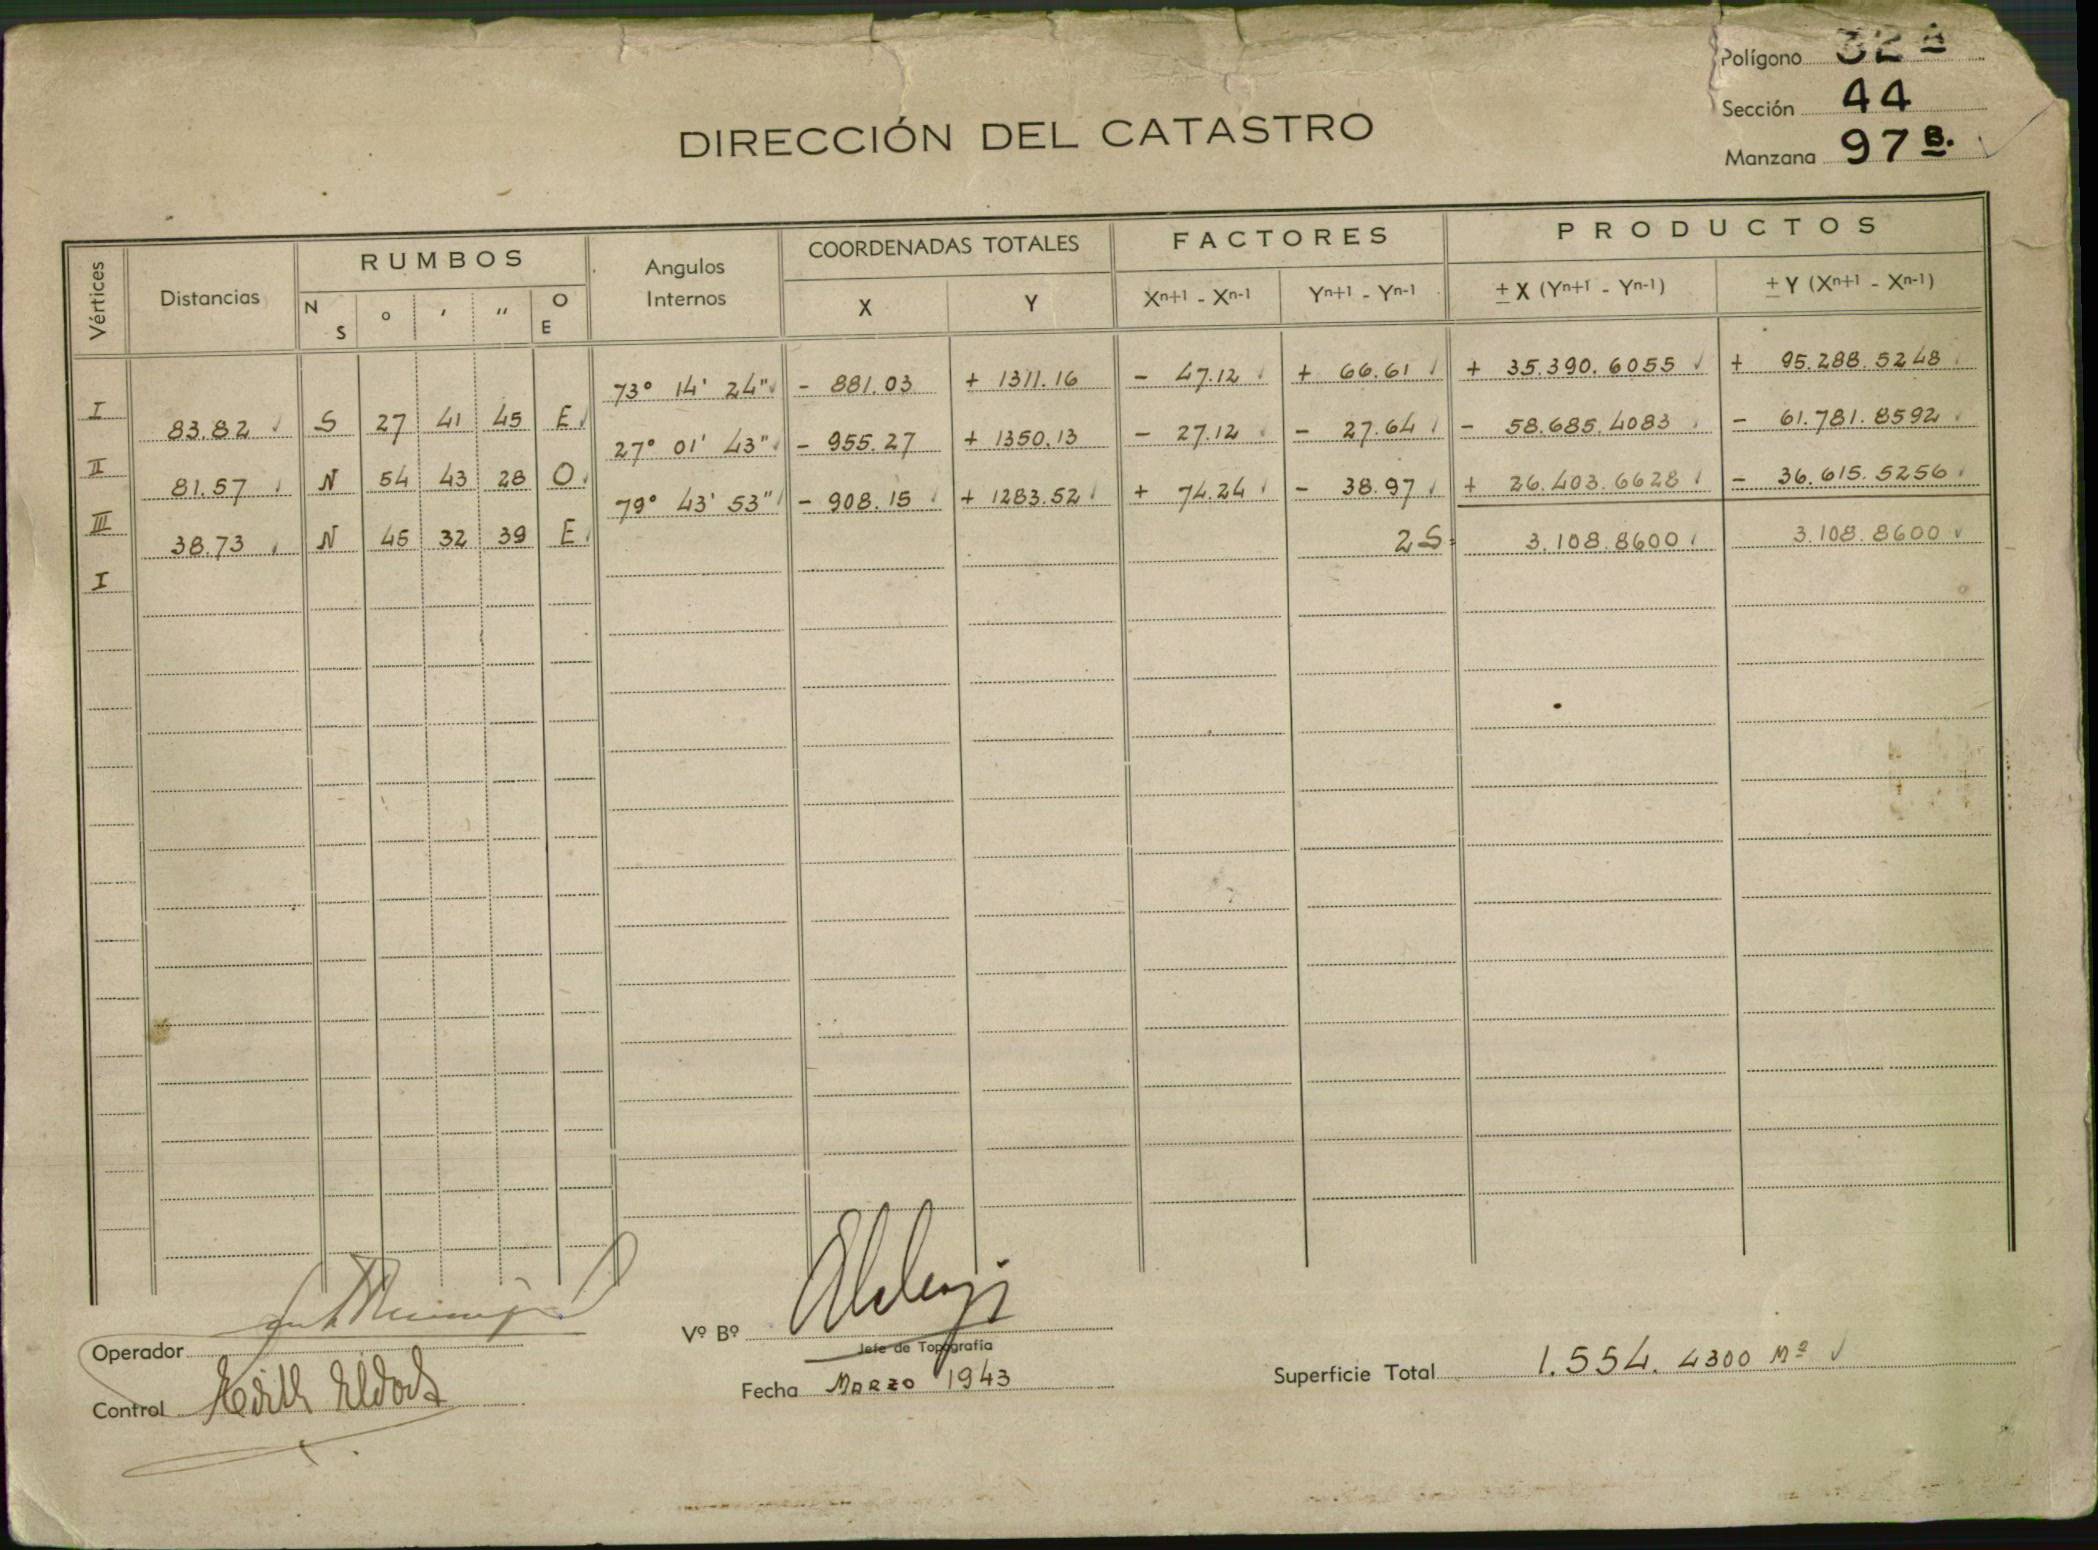 Polígono 32 A
Sección 44
Manzana 97 B.
DIRECCIÓN DEL CATASTRO
Vértices Distancias RUMBOS Angulos Internos COORDENADAS TOTALES FACTORES PRODUCTOS
N S ° ' " O E X Y Xn+1 - Xn-1 Yn+1 - Yn-1 ± X (Yn+1 - Yn-1) ± Y (Xn+1 - Xn-1)
73° 14' 24" - 881.03 + 1311.16 - 47.12 + 66.61 + 35.390.6055 + 95.288.5248
I
83.82 S 27 41 45 E
27° 01' 43" - 955.27 + 1350.13 - 27.12 - 27.64 - 58.685.4083 - 61.781.8592
II
81.57 N 54 43 28 O
79° 43' 53" - 908.15 + 1283.52 + 74.24 - 38.97 + 26.403.6628 - 36.615.5256
III
38.73 N 45 32 39 E
2S 3.108.8600 3.108.8600
I
Operador
Vº Bº
Jefe de Topografía
Control
Fecha Marzo 1943
Superficie Total 1.554.4300 M2